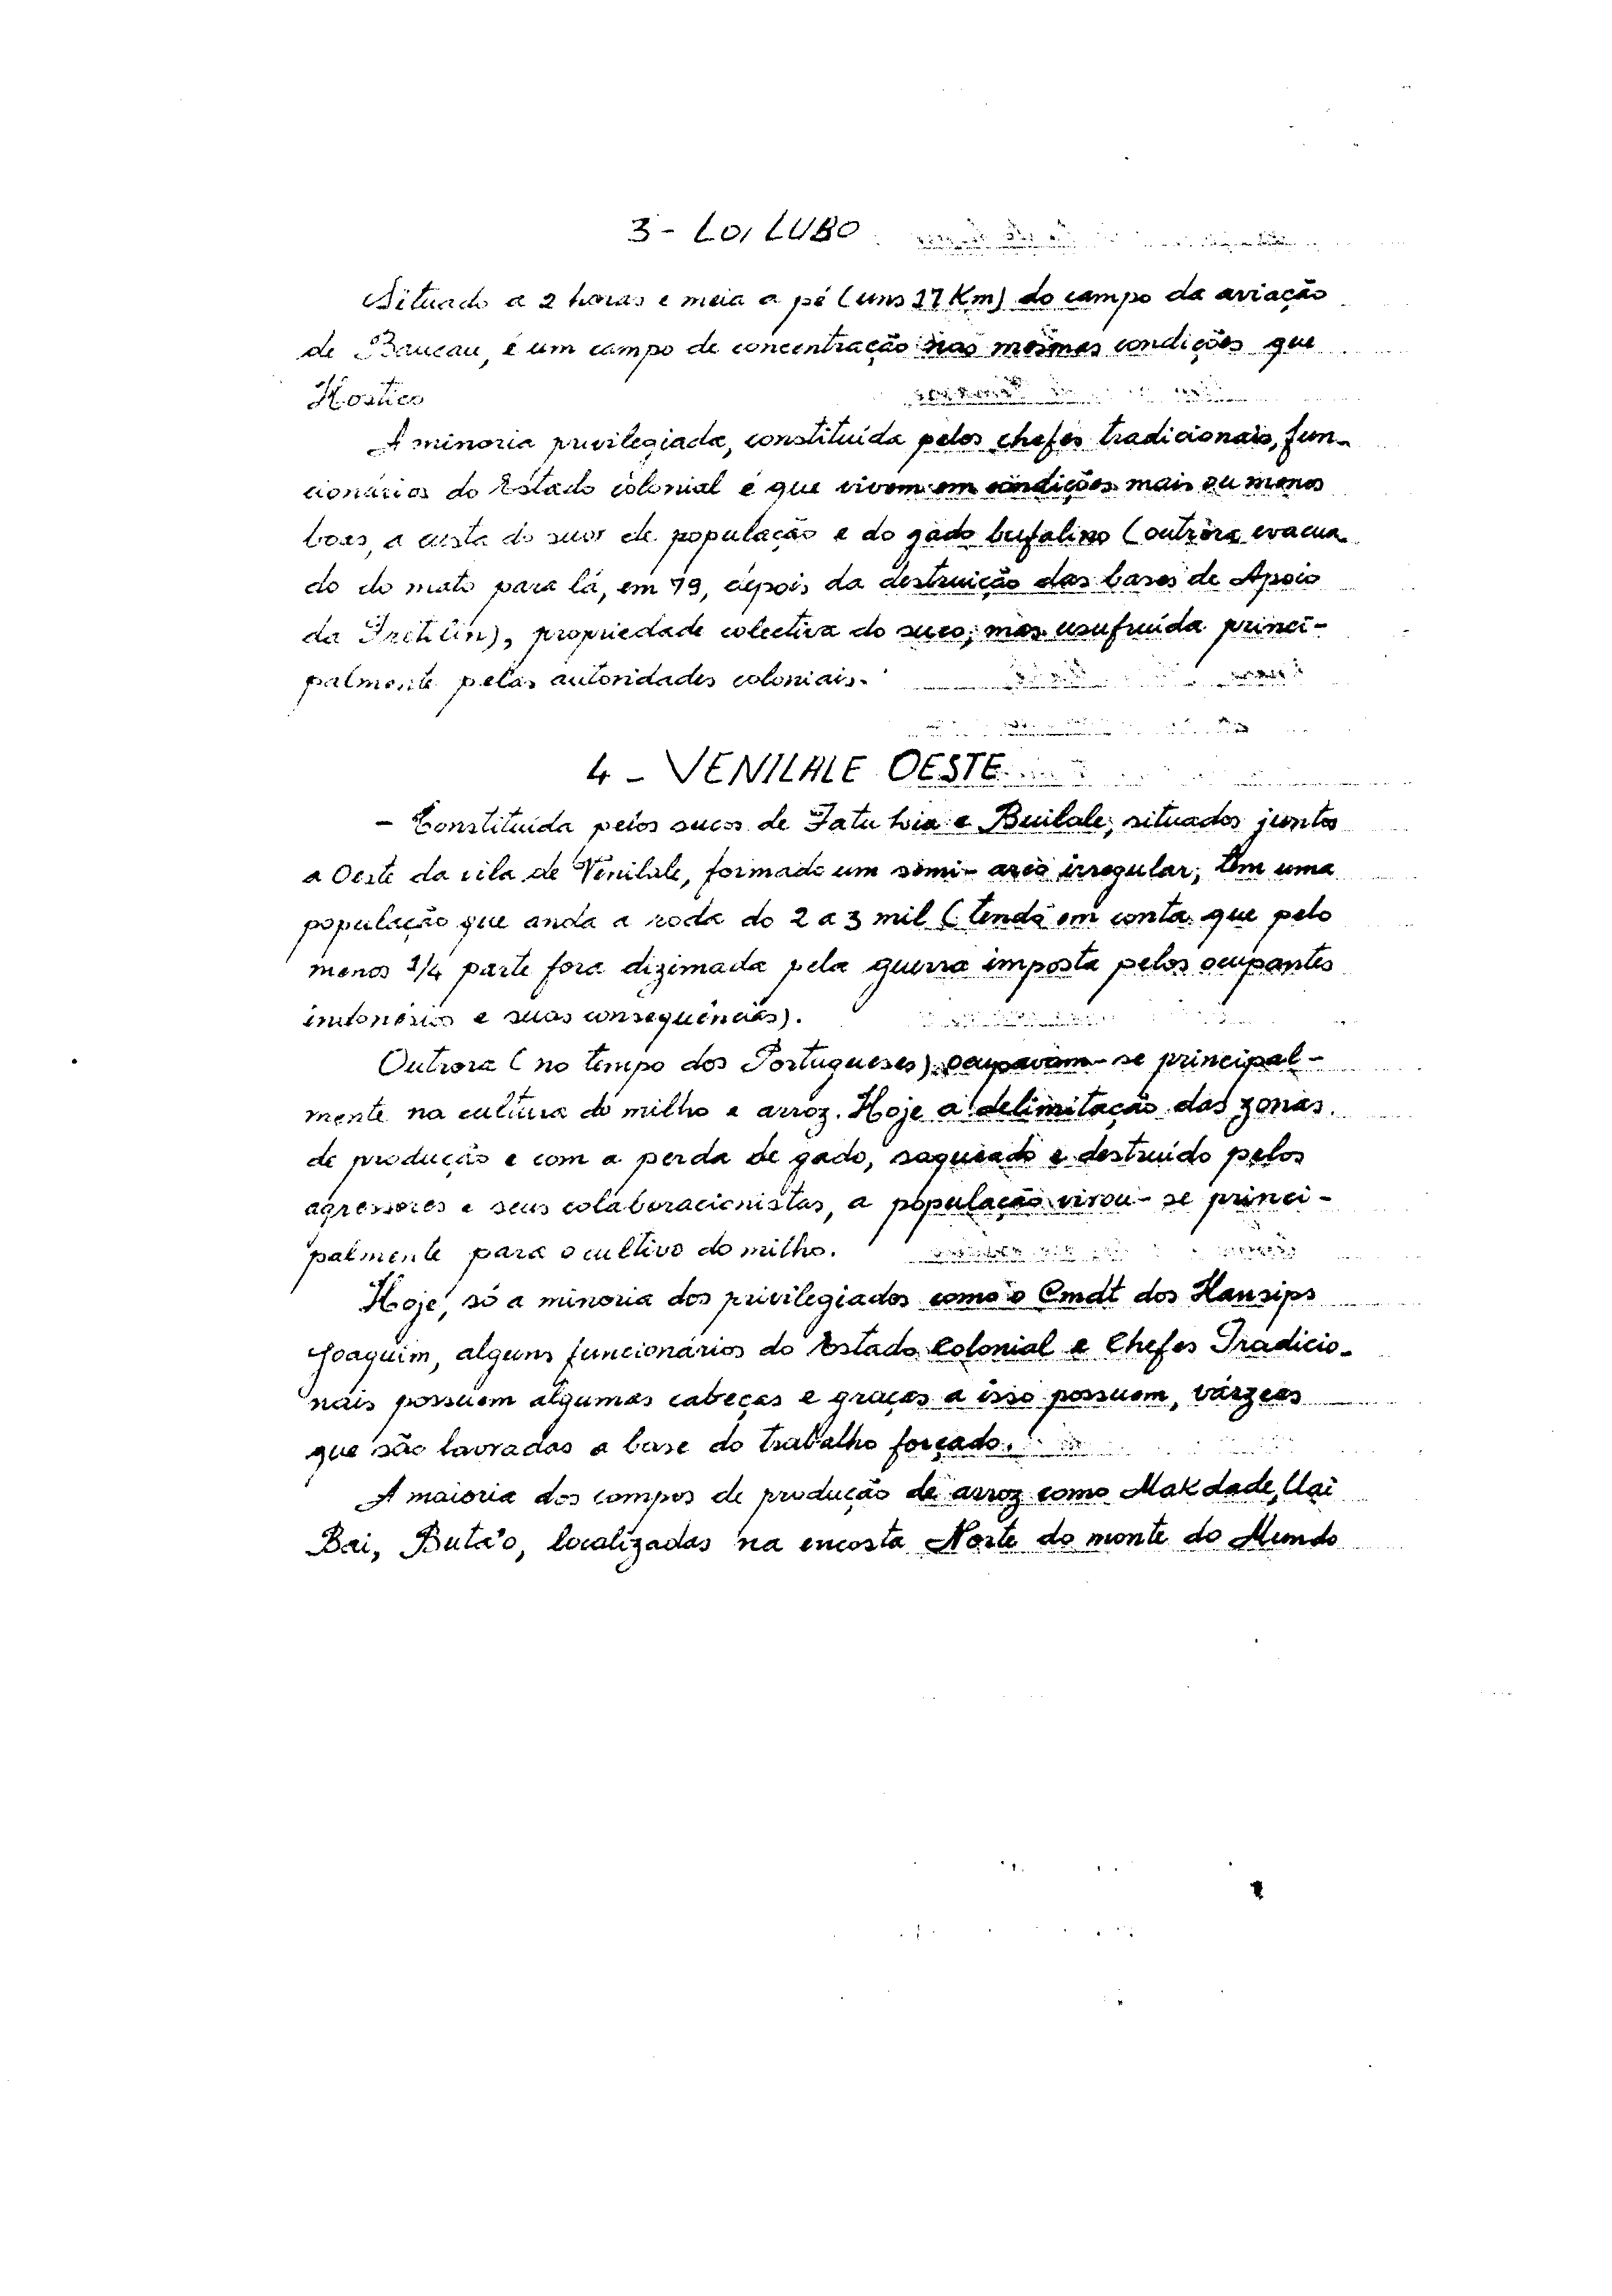 3 - LOI LUBO
Situado a 2 horas e meia a pé (uns 17 Km) do campo da aviação
de Baucau, é um campo de concentração nas mesmas condições que
Hostico
A minoria privilegiada, constituída pelos chefes tradicionais, fun-
cionários do Estado colonial é que vivem em condições mais ou menos
boas, a custa do suor de população e do gado bufalino (outrora evacua-
do do mato para lá, em 79, depois da destruição das bases de Apoio
da Fretilin), propriedade colectiva do suco, mas usufruída princi-
palmente pelas autoridades coloniais.
4 - VENILALE OESTE
- Constituída pelos sucos de Fatulia e Builale, situados juntos
a Oeste da vila de Venilale, formado um semi-arco irregular, tem uma
população que anda a roda do 2 a 3 mil (tendo em conta que pelo
menos 1/4 parte fora dizimada pela guerra imposta pelos ocupantes
indonésios e suas consequências).
Outrora (no tempo dos Portugueses) ocupavam-se principal-
mente na cultura do milho e arroz. Hoje a delimitação das zonas
de produção e com a perda de gado, saqueado e destruído pelos
agressores e seus colaboracionistas, a população virou-se princi-
palmente para o cultivo do milho.
Hoje, só a minoria dos privilegiados como o Cmdt dos Hansips
Joaquim, alguns funcionários do Estado Colonial e Chefes Tradicio-
nais possuem algumas cabeças e graças a isso possuem, várzeas
que são lavradas a base do trabalho forçado.
A maioria dos campos de produção de arroz como Makdade, Uai
Bai, Buta'o, localizadas na encosta Norte do monte do Mundo